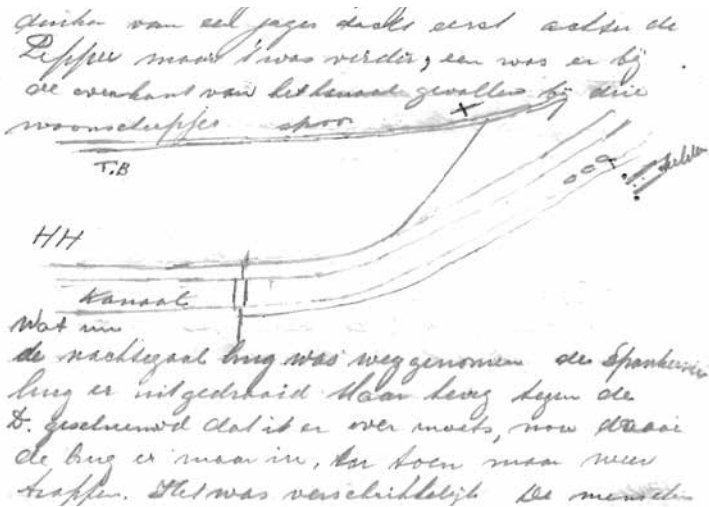 van een jager dacht eerst achter de
Pepper maar 't was verder, een was er bij
de overkant van het kanaal gevallen bij drie
woonscheepjes spoor
X
T.B
HH
Kanaal
Wat nu
de nachtegaal brug was weggenomen de
brug er uitgedraaid Maar terug tegen de
D. geschreeuwd dat ik er over moets, nou draai
de brug er maar in, toen maar weer
trappen. Het was verschrikkelijk De menschen